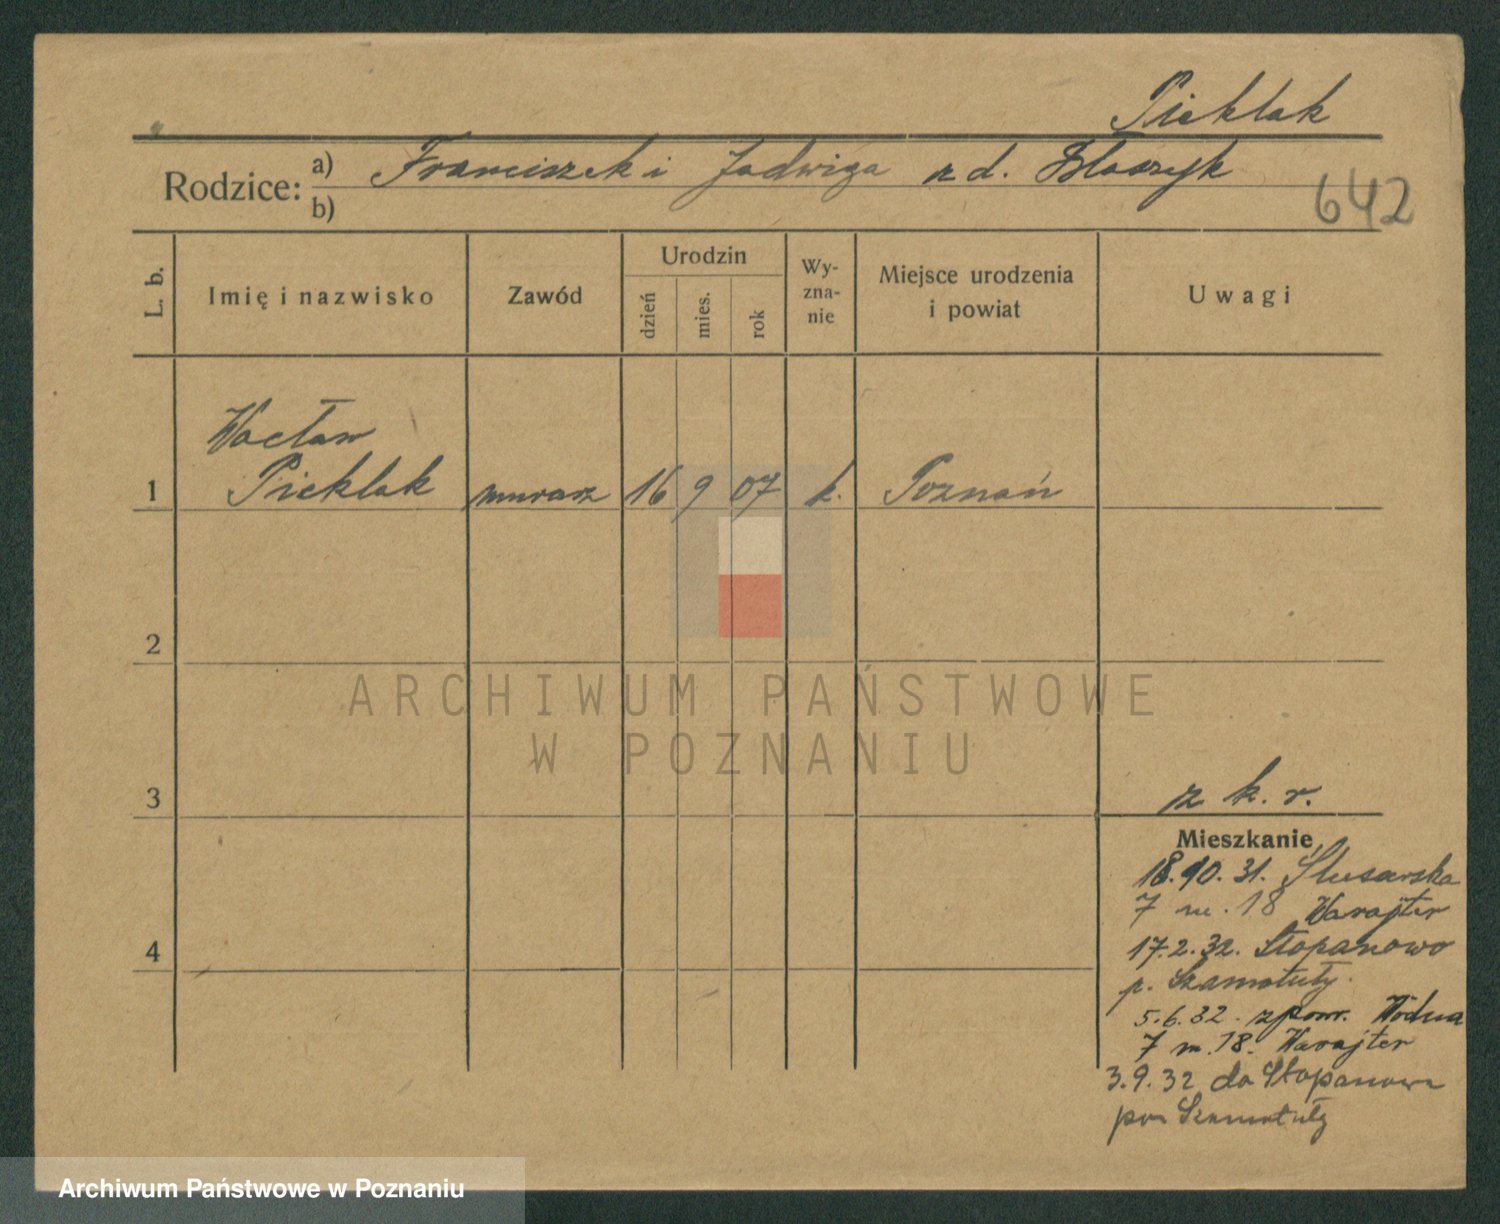 Pieklak
Rodzice: a) Franciszek i Jadwiga z d. Błaszyk
b)
642
L. b.
Imię i nazwisko
Zawód
Urodzin
dzień
mies.
rok
Wy-
zna-
nie
Miejsce urodzenia
i powiat
Uwagi
Wacław
1 Pieklak murarz 16 9 07 k. Poznań
2
ARCHIWUM PAŃSTWOWE
W POZNANIU
3
z k. r.
Mieszkanie
18.10.31. Ślusarska
7 m. 18 Warajter
17.2.32. Stopanowo
p. Szamotuły.
5.6.32. z pow. Wodna
7 m. 18. Warajter
3.9.32 do Stopanowa
pow Szamotuły
4
Archiwum Państwowe w Poznaniu